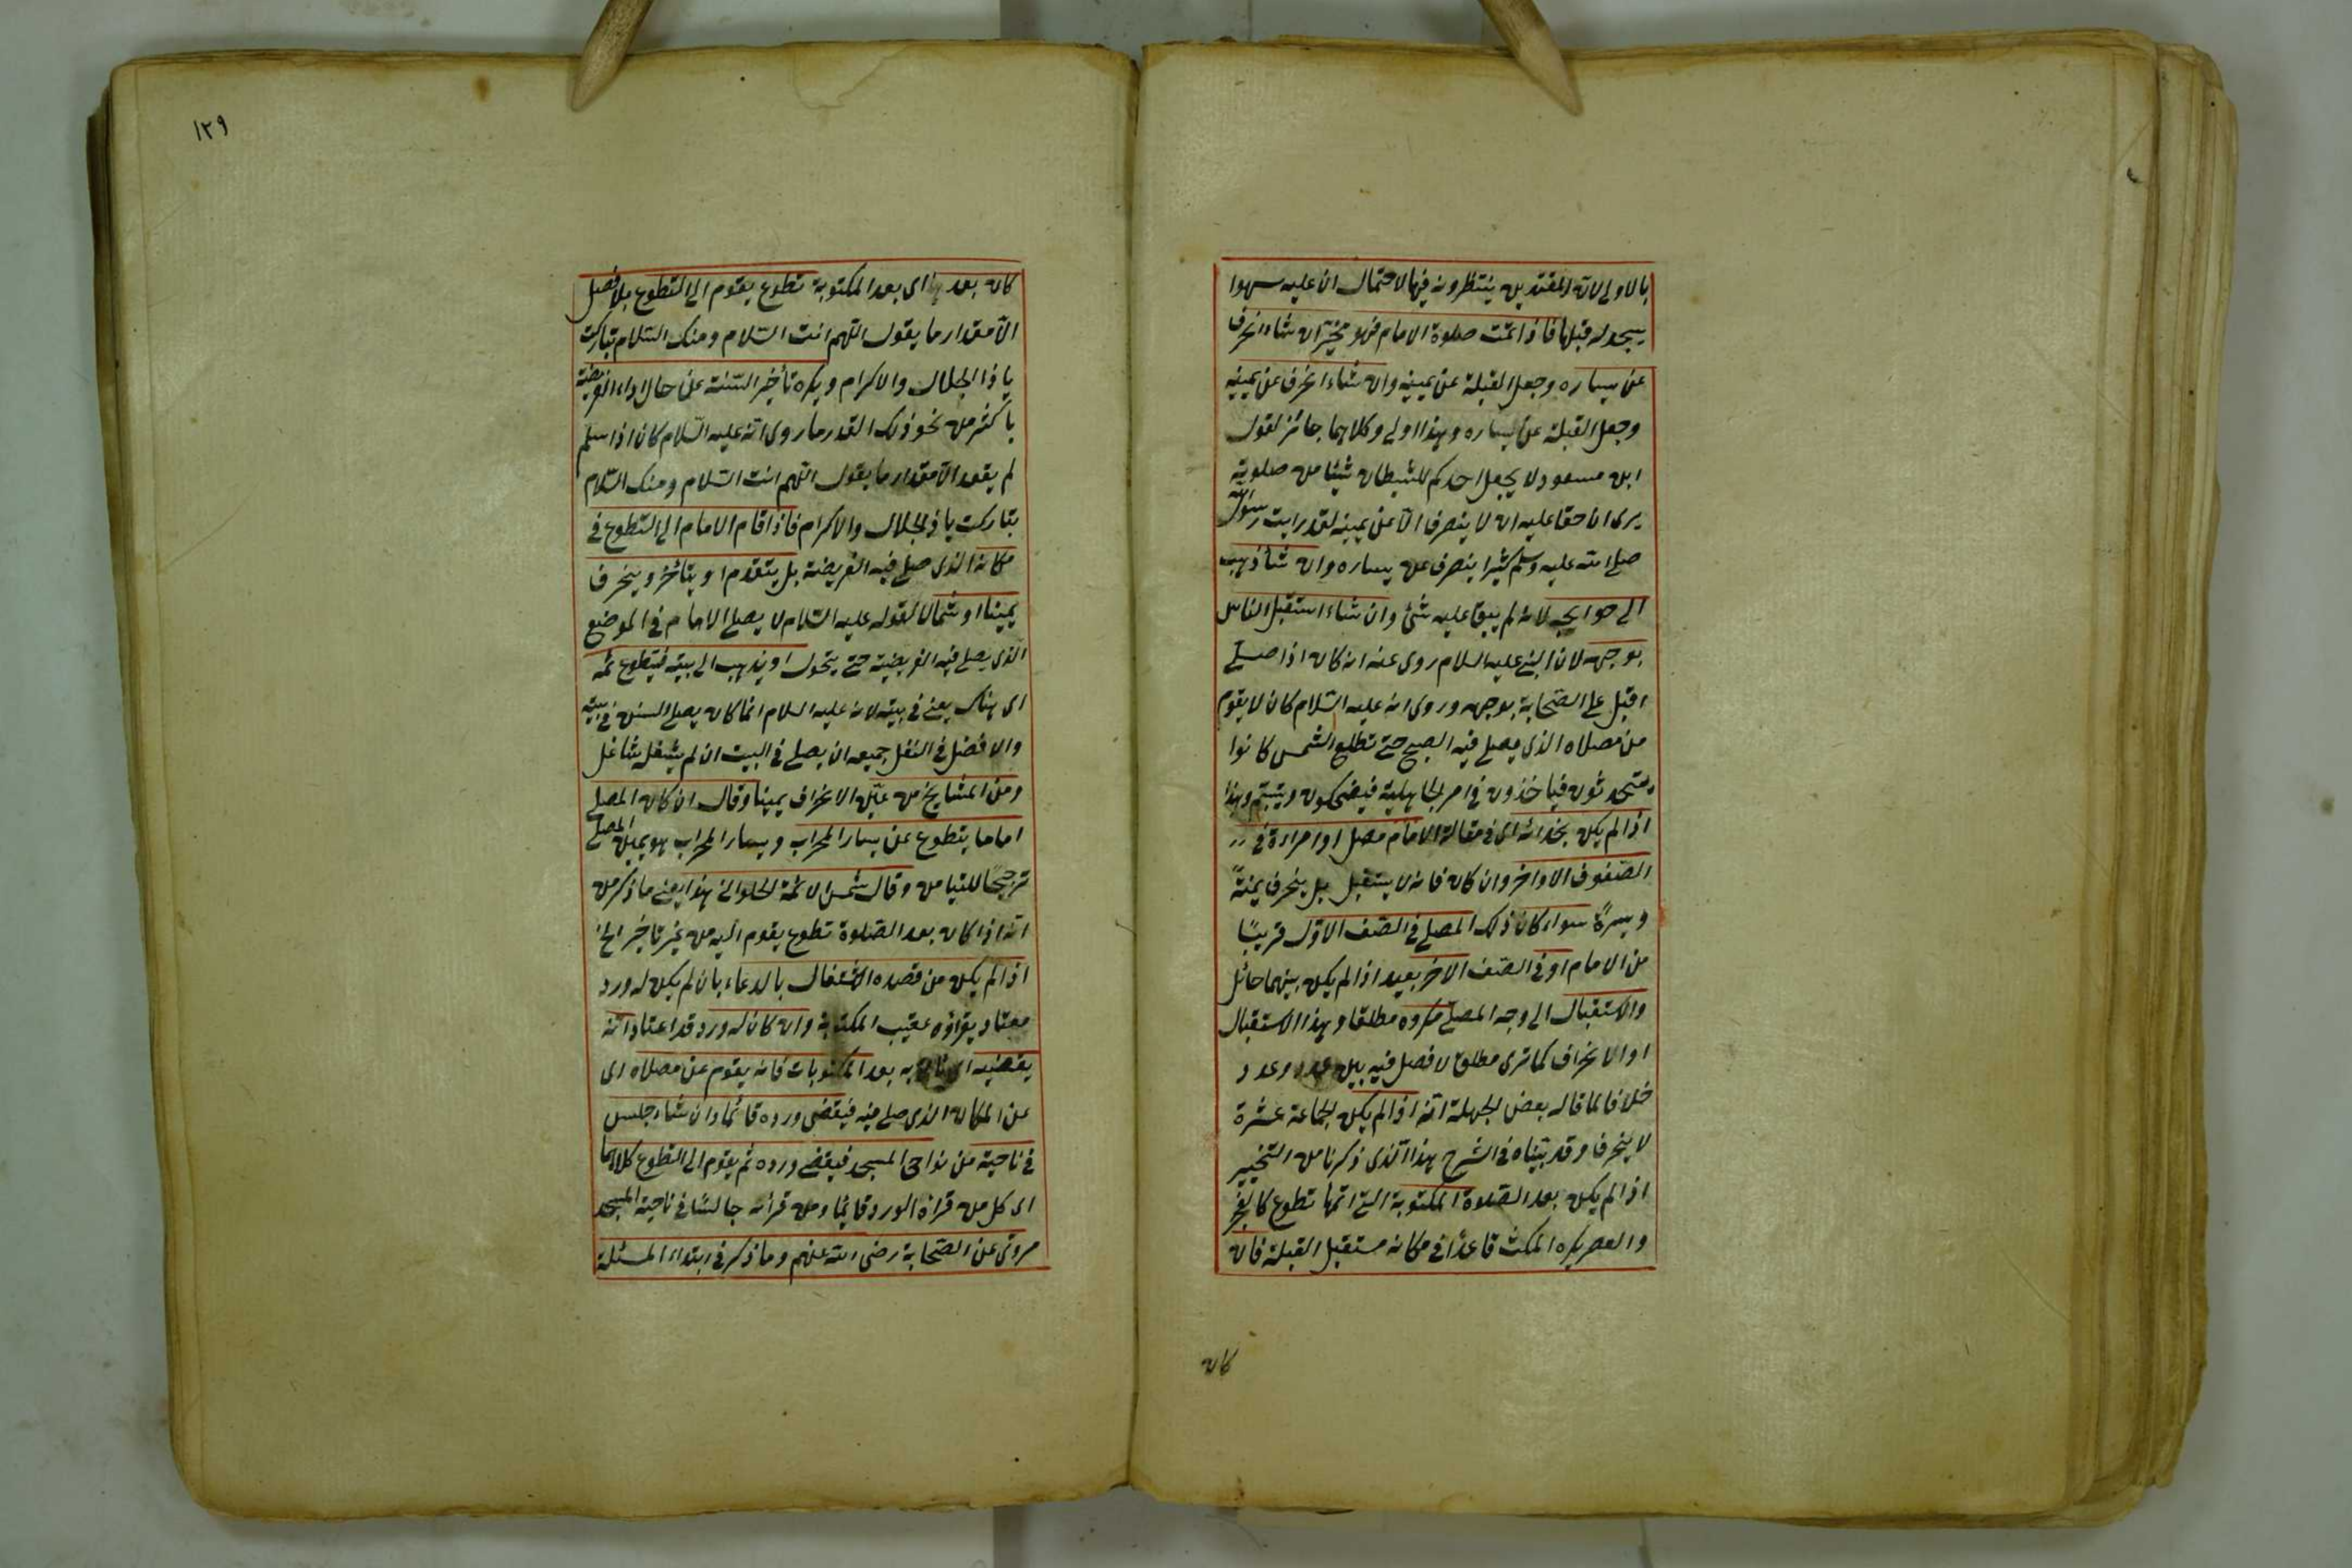 بالاولى لان المقتدين ينتظرونه فيها لاحتمال ان عليه سهوا
يسجد له قبلها فاذا تمت صلوة الامام فهو مخير ان شاء انحرف
عن يساره وجعل القبلة عن يمينه وان شاء انحرف عن يمينه
وجعل القبلة عن يساره وهذا اولى وكلاهما جائز لقول
ابن مسعود لا يجعل احدكم للشيطان شيئا من صلوته
يرى ان حقا عليه ان لا ينصرف الا عن يمينه لقد رايت رسول الله
صلى الله عليه وسلم كثيرا ينصرف عن يساره وان شاء ذهب
الى حوايجه لانه لم يبق عليه شئ وان شاء استقبل الناس
بوجهه لان النبى عليه السلام روى عنه انه كان اذا صلى
اقبل على الصحابة بوجهه وروى انه عليه السلام كان لا يقوم
من مصلاه الذى يصلى فيه الصبح حتى تطلع الشمس كانوا
يتحدثون فياخذون فى امر الجاهلية فيضحكون ويتبسم وهذا
اذا لم يكن بحذائه اى فى مقابلة الامام مصل او امراءة فى
الصفوف الاواخر وان كان فانه لا يستقبل بل ينحرف يمنةً
ويسرةً سواء كان ذلك المصلى فى الصف الاول قريبًا
من الامام او فى الصف الاخر بعيد اذا لم يكن بينهما حائل
والاستقبال الى وجه المصلى مكروه مطلقا وهذا الاستقبال
او الانحراف كما ترى مطلق لا فصل فيه بين عدد وعدد
خلافا لما قاله بعض الجهلة انه اذا لم يكن الجماعة عشرة
لا ينحرف وقد بيناه فى الشرح هذا الذى ذكرنا من التخيير
اذا لم يكن بعد الصلوة المكتوبة التى اتمها تطوع كالفجر
والعصر يكره المكث قاعدًا فى مكانه مستقبل القبلة فان
كان
١٢٩
كان بعدها اى بعد المكتوبة تطوع يقوم الى التطوع بلا فصل
الا مقدار ما يقول اللهم انت السلام ومنك السلام تباركت
يا ذا الجلال والاكرام ويكره تأخير السنة عن حال اداء الفريضة
باكثر من نحو ذلك القدر ما روى انه عليه السلام كان اذا سلم
لم يقعد الا مقدار ما يقول اللهم انت السلام ومنك السلام
تباركت يا ذا الجلال والاكرام فاذا قام الامام الى التطوع فى
مكانه الذى صلى فيه الفريضة بل يتقدم او يتأخر وينحرف
يمينا او شمالا لقوله عليه السلام لا يصلى الامام فى الموضع
الذى يصلى فيه الفريضة حتى يتحول او يذهب الى بيته فيتطوع ثمه
اى هناك يعنى فى بيته لانه عليه السلام انما كان يصلى السنن فى بيته
والافضل فى النفل جميعه ان يصلى فى البيت ان لم يشغله شاغل
ومن المشايخ من عين الانحراف يمينا وقال ان كان المصلى
اماما يتطوع عن يسار المحراب ويسار المحراب هو يمين المصلى
ترجيحًا للتيامن وقال شمس الائمة الحلوانى هذا يعنى ما ذكر من
انه اذا كان بعد الصلوة تطوع يقوم اليه من غير تاخير الخ
اذا لم يكن من قصده الاشتغال بالدعاء بان لم يكن له ورد
معتاد يقرأه عقيب المكتوبة وان كان له ورد قد اعتاد انه
يقضيه اى ياتى به بعد المكتوبات فانه يقوم عن مصلاه اى
عن المكان الذى صلى فيه فيقضى ورده قائما وان شاء جلس
فى ناحية من نواحى المسجد فيقضى ورده ثم يقوم الى التطوع كلاهما
اى كل من قراة الورد قائما ومن قرائه جالسًا فى ناحية المسجد
مروى عن الصحابة رضى الله عنهم وما ذكر فى ابتداء المسئلة